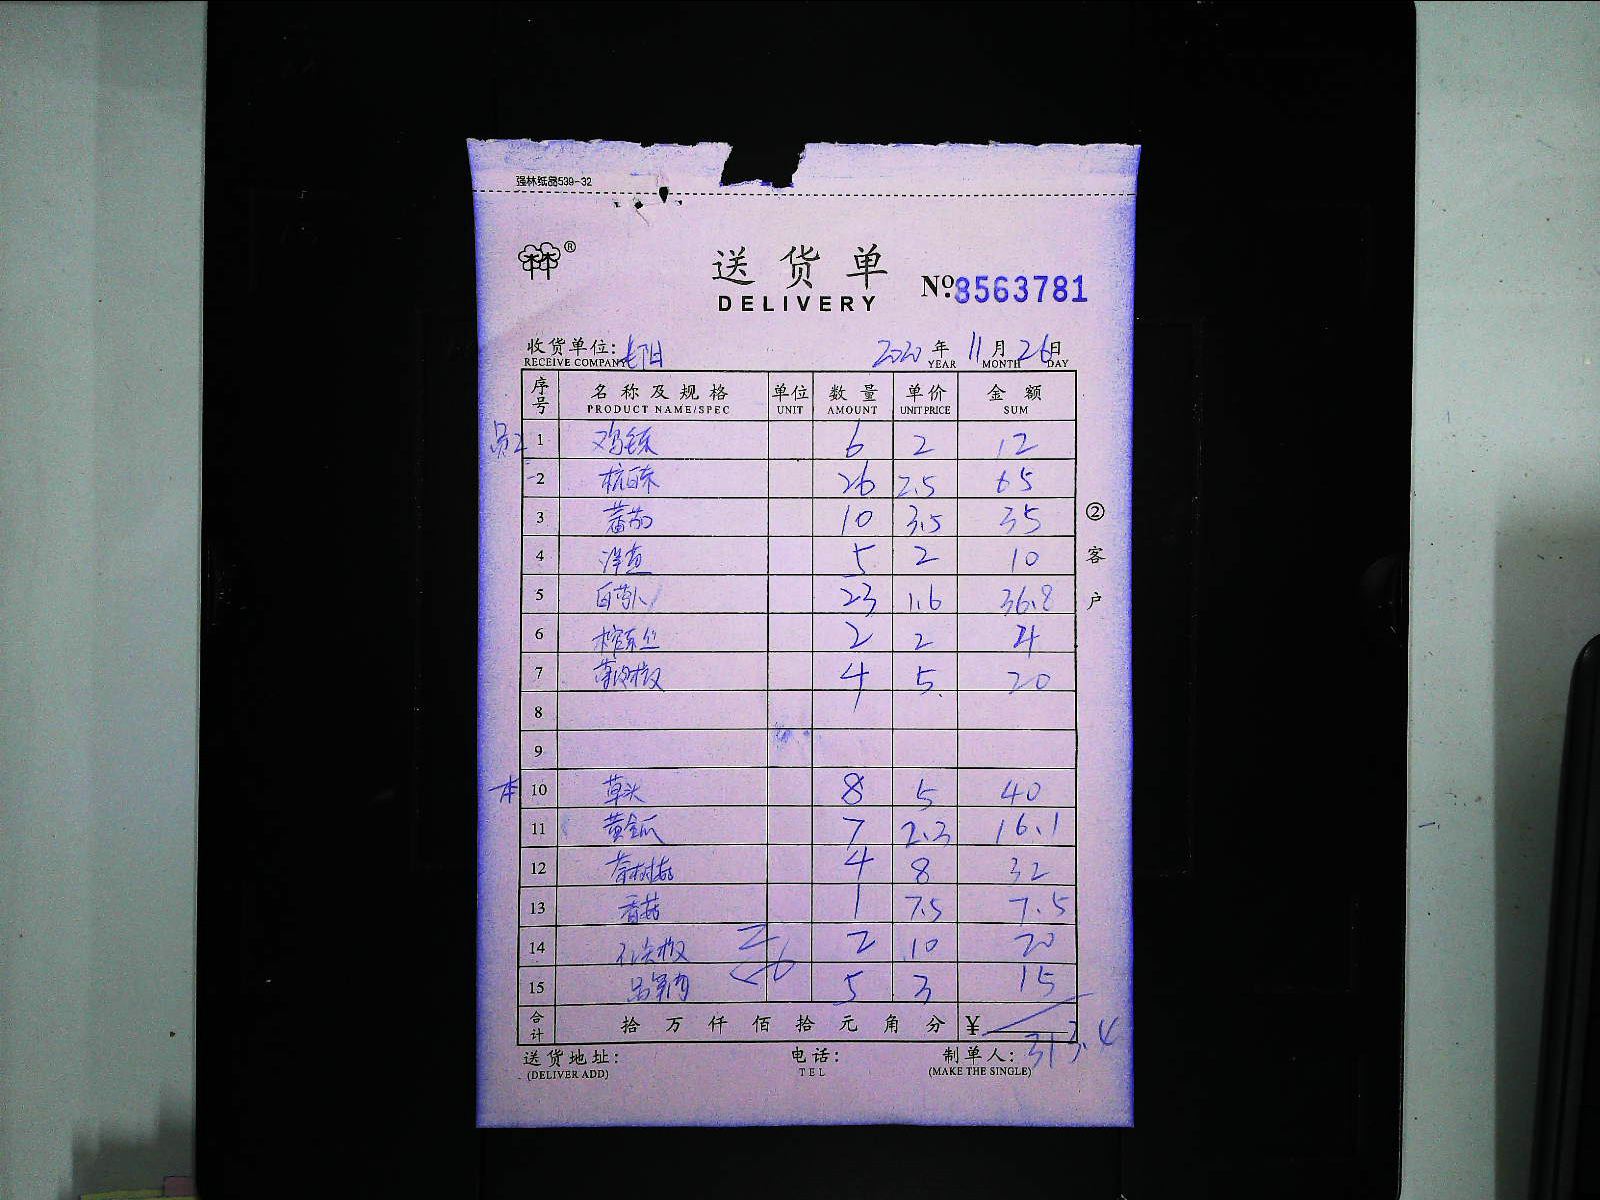 强林纸品539-32
林®
送货单
DELIVERY
No.8563781
收货单位: 2020年11月26日
RECEIVE COMPANY YEAR MONTH DAY
序号 名称及规格 单位 数量 单价 金额
PRODUCT NAME/SPEC UNIT AMOUNT UNIT PRICE SUM
1 鸡毛菜 6 2 12
2 杭白菜 26 2.5 65
3 蕃茄 10 3.5 35
4 洋葱 5 2 10
5 白萝卜 23 1.6 36.8
6 榨菜丝 2 2 4
7 4 5 20
8
9
本 10 草头 8 5 40
11 黄金瓜 7 2.3 16.1
12 茶树菇 4 8 32
13 香菇 1 7.5 7.5
14 2 10 20
15 5 3 15
合计 拾万仟佰拾元角分 ¥ 313.4
送货地址: 电话: 制单人:
(DELIVER ADD) TEL (MAKE THE SINGLE)
②客户